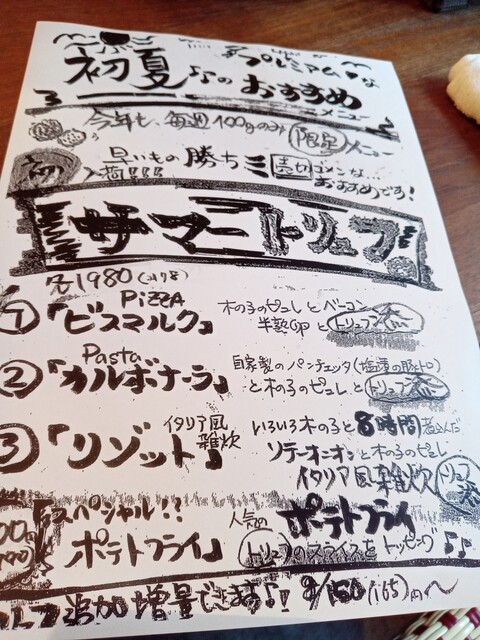 プレミアム♪な
初夏♪♪のおすすめ
メニュー
今年も、毎週100gのみ 限定 メニュー
初入荷!!! 早いもの勝ち 売切ゴメンな...
おすすめです!
サマートリュフ
各1980
PIZZA
① 『ビスマルク』 木の子のピュレとベーコン
半熟卵と トリュフ添
Pasta
② 『カルボナーラ』 自家製のパンチェッタ(塩漬の豚トロ)
と木の子のピュレと トリュフ添
③ 『リゾット』 イタリア風雑炊 いろいろ木の子と8時間煮込んだ
ソテーオニオンと木の子のピュレ
イタリア風雑炊 トリュフ添
スペシャル!! 人気の ポテトフライ
ポテトフライ』 トリュフのスライスをトッピング♪♪
追加増量できます♪! g/150(165)円〜